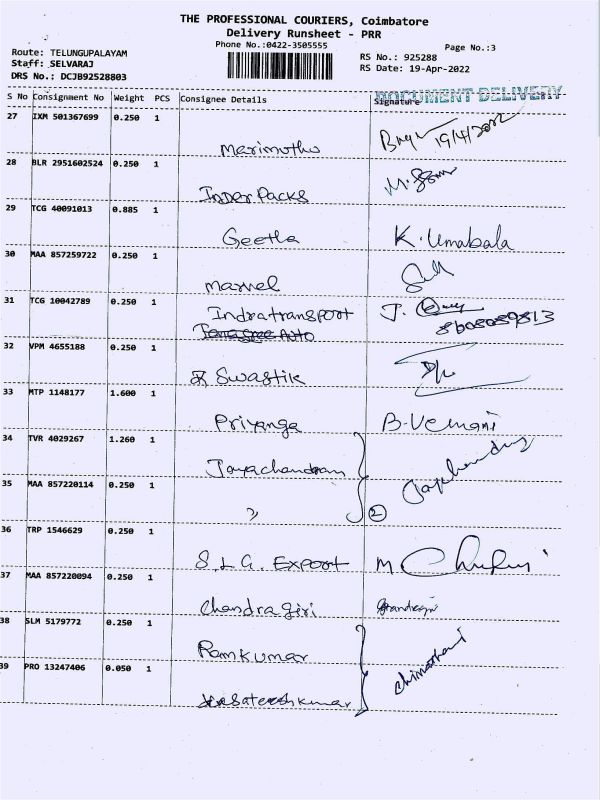 THE PROFESSIONAL COURIERS, Coimbatore
Delivery Runsheet - PRR
Phone No.:0422-3505555
Page No.:3
Route: TELUNGUPALAYAM
Staff: SELVARAJ
DRS No.: DCJB92528803
RS No.: 925288
RS Date: 19-Apr-2022
S No Consignment No Weight PCS Consignee Details Signature
DOCUMENT DELIVERY
27 IXM 501367699 0.250 1
Marimuthu 19/4/2022
28 BLR 2951602524 0.250 1
Inder Packs
29 TCG 40091013 0.885 1
Geetha K. Umabala
30 MAA 857259722 0.250 1
Marvel
31 TCG 10042789 0.250 1
Indratransport J.
Auto 8608089813
32 VPM 4655188 0.250 1
Swastik
33 MTP 1148177 1.600 1
Priyanga B-Vemani
34 TVR 4029267 1.260 1
Jayachandran
35 MAA 857220114 0.250 1
" 2
36 TRP 1546629 0.250 1
S.L.G. Export M
37 MAA 857220094 0.250 1
Chandragiri
38 SLM 5179772 0.250 1
Ramkumar
39 PRO 13247406 0.050 1